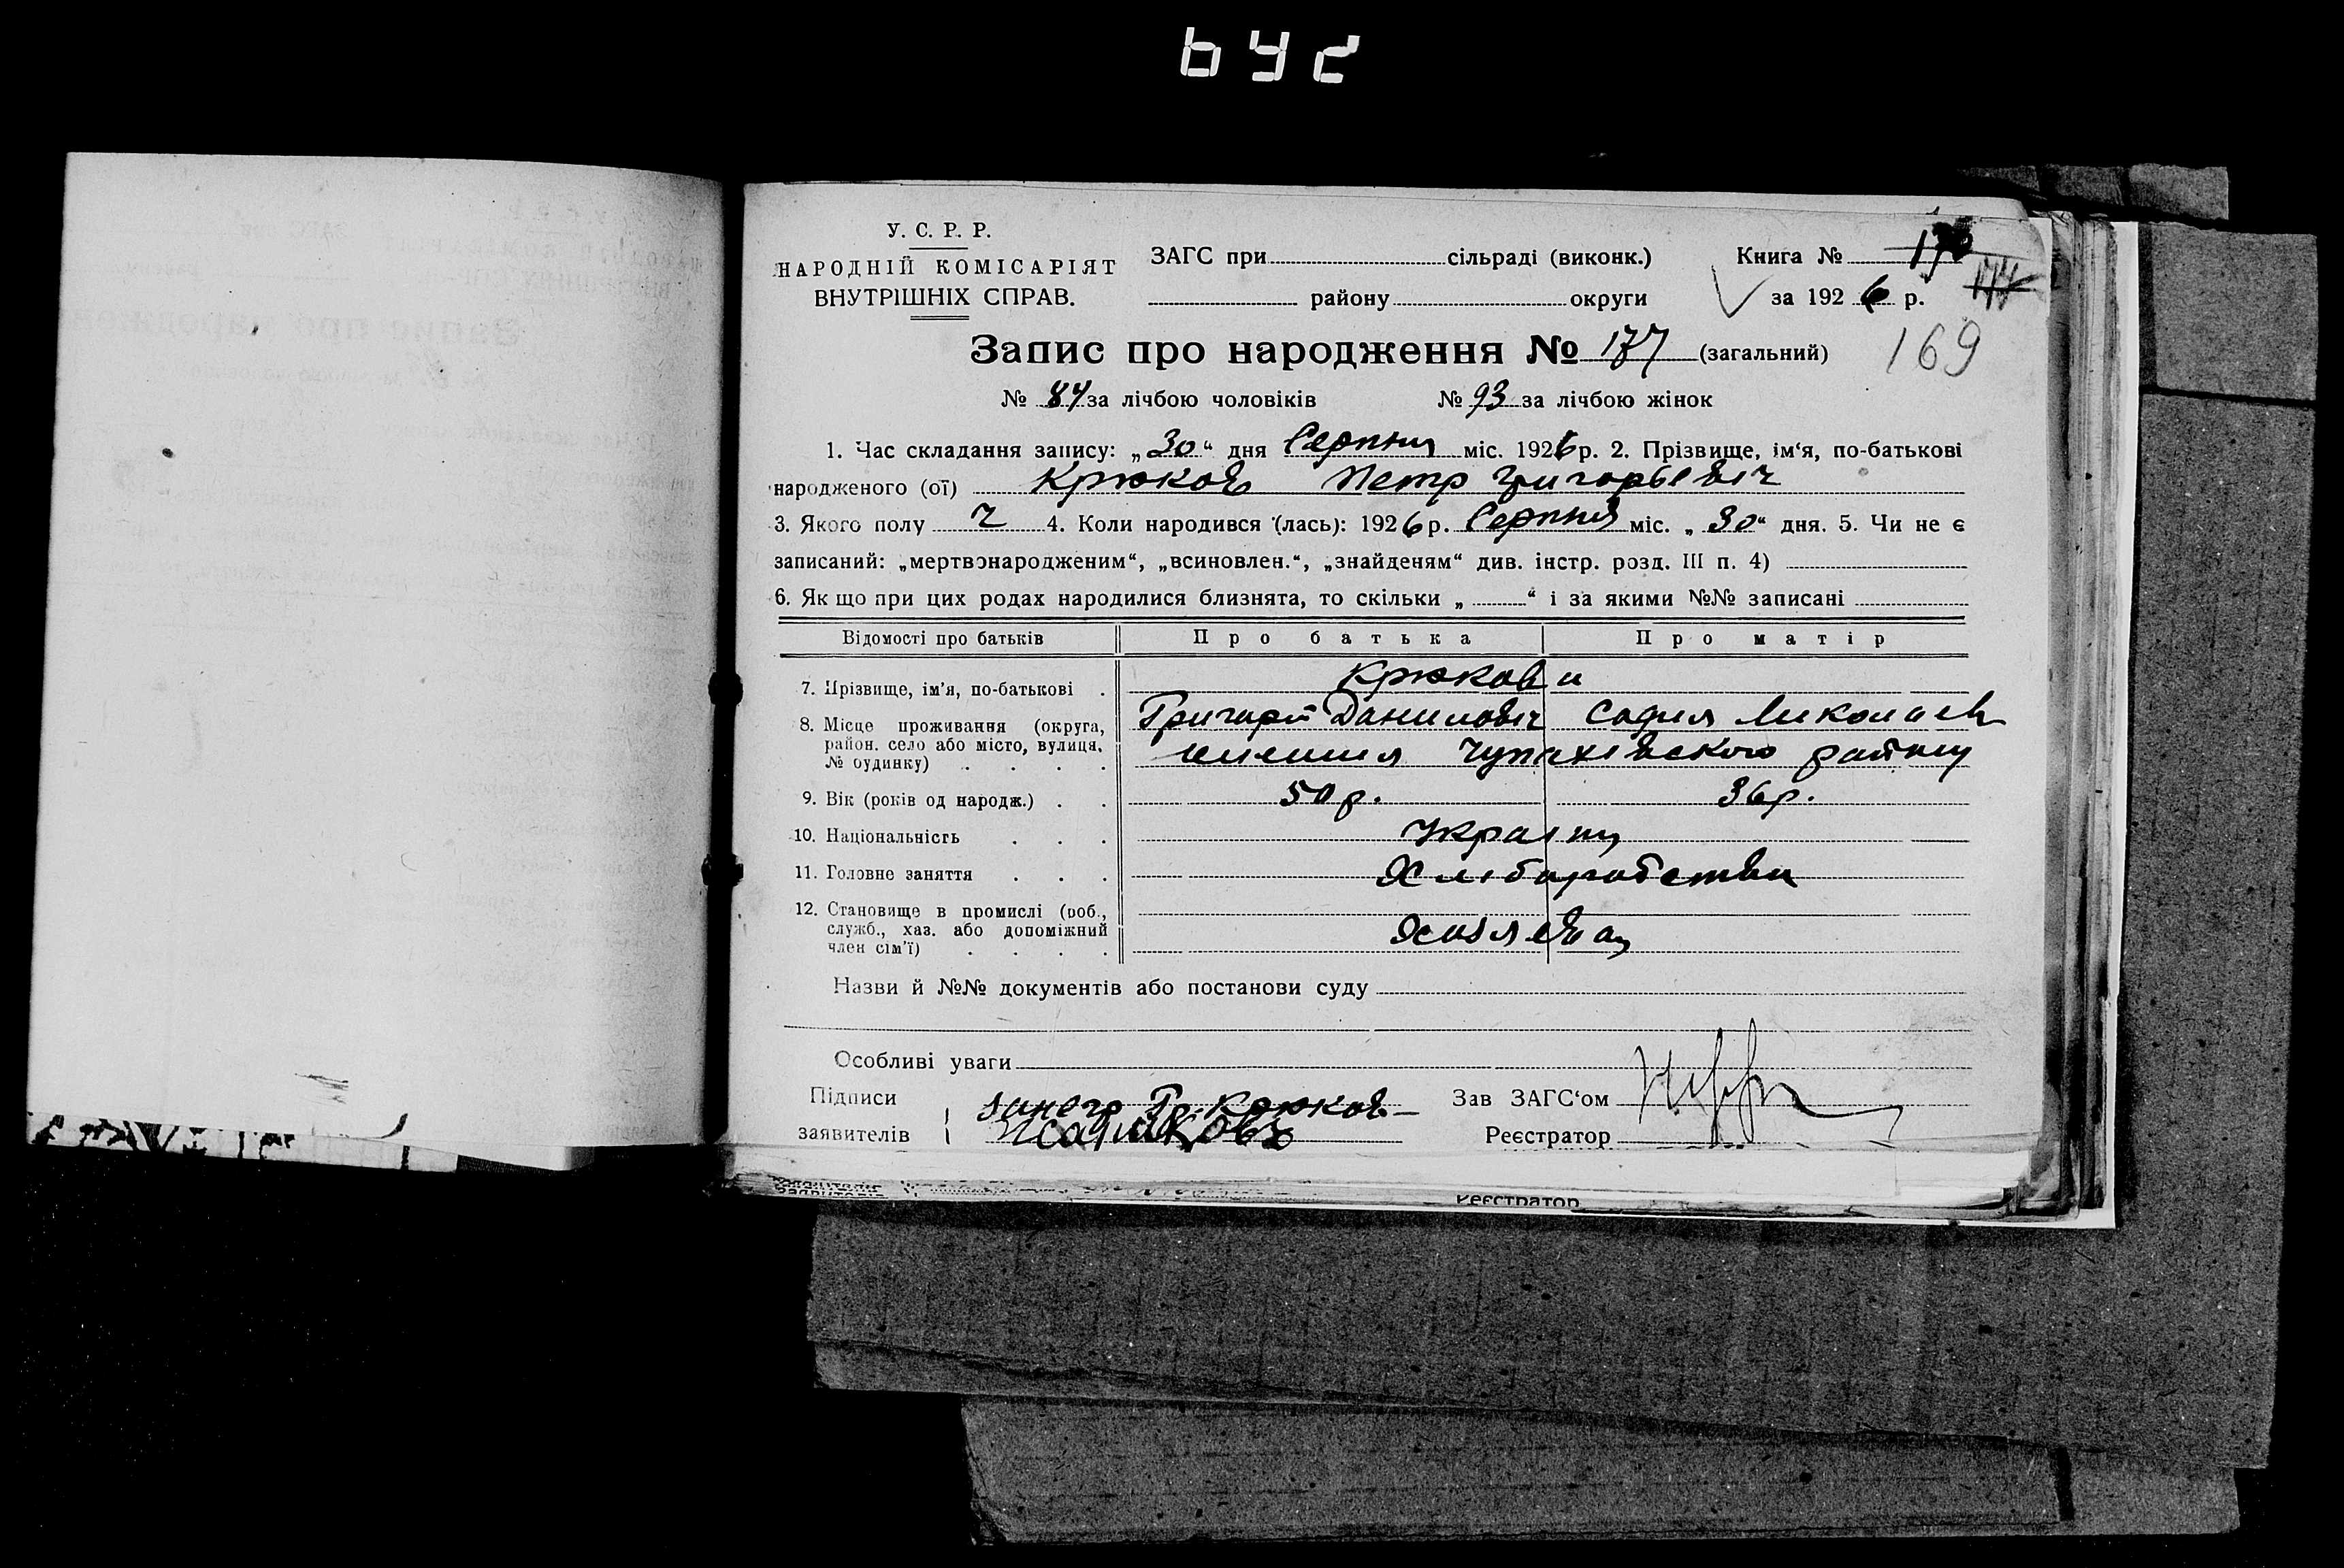 У. С. Р. Р.
НАРОДНІЙ КОМІСАРІЯТ
ВНУТРІШНІХ СПРАВ.
ЗАГС при сільраді (виконк.)
району округи
Книга №
за 1926 р.
169
Запис про народження № 177 (загальний)
№ 84 за лічбою чоловіків № 93 за лічбою жінок
1. Час складання запису: „30“ дня Серпня міс. 1926 р. 2. Прізвище, ім‘я, по-батькові
народженого (ої) Крюков Петр Григорьевіч
3. Якого полу ч 4. Коли народився (лась): 1926 р. Серпня міс. „30“ дня. 5. Чи не є
записаний: „мертвонародженим“, „всиновлен.“, „знайденям“ див. інстр. розд. III п. 4)
6. Як що при цих родах народилися близнята, то скільки „ “ і за якими №№ записані
Відомості про батьків Про батька Про матір
7. Прізвище, ім’я, по-батькові Крюкови
8. Місце проживання (округа, Григорій Данилович София Миколаев
район. село або місто, вулиця, Чупахівского району
№ будинку)
9. Вік (років од народж.) 50 р. 36 р.
10. Національність Україн
11. Головне заняття Хліборобства
12. Становище в промислі (роб.,
служб., хаз. або допоміжний
член сім’ї)
Назви й №№ документів або постанови суду
Особливі уваги
Підписи Гр. Крюков Зав ЗАГС‘ом
заявителів Реєстратор
Реєстратор